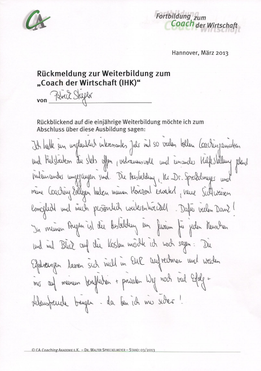 CA
Fortbildung zum
Coach der Wirtschaft
Hannover, März 2013
Rückmeldung zur Weiterbildung zum
„Coach der Wirtschaft (IHK)“
von
Rückblickend auf die einjährige Weiterbildung möchte ich zum
Abschluss über diese Ausbildung sagen:
Ich hatte ein unglaublich interessantes Jahr mit so vielen tollen Coachingstunden
und Mitstreitern die stets offen, vertrauensvoll und immer
miteinander umgegangen sind. Die Ausbildung, Hr. Dr. Spreckelmeyer und
meine Coaching Kollegen haben meinen Horizont erweitert, neue Sichtweisen
ermöglicht und mich persönlich weiterentwickelt. Dafür vielen Dank!
In meinen Augen ist die Ausbildung ein
und im Blick auf die Kosten möchte ich noch sagen: Die
Erfahrungen lassen sich nicht in EUR aufrechnen und werden
uns auf meinem beruflichen + privaten Weg noch viel Erfolg +
bringen - da bin ich mir sicher!
© CA Coaching Akademie e.K. – Dr. Walter Spreckelmeyer – Stand: 03/2013